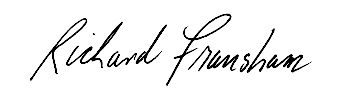 Richard Fransham